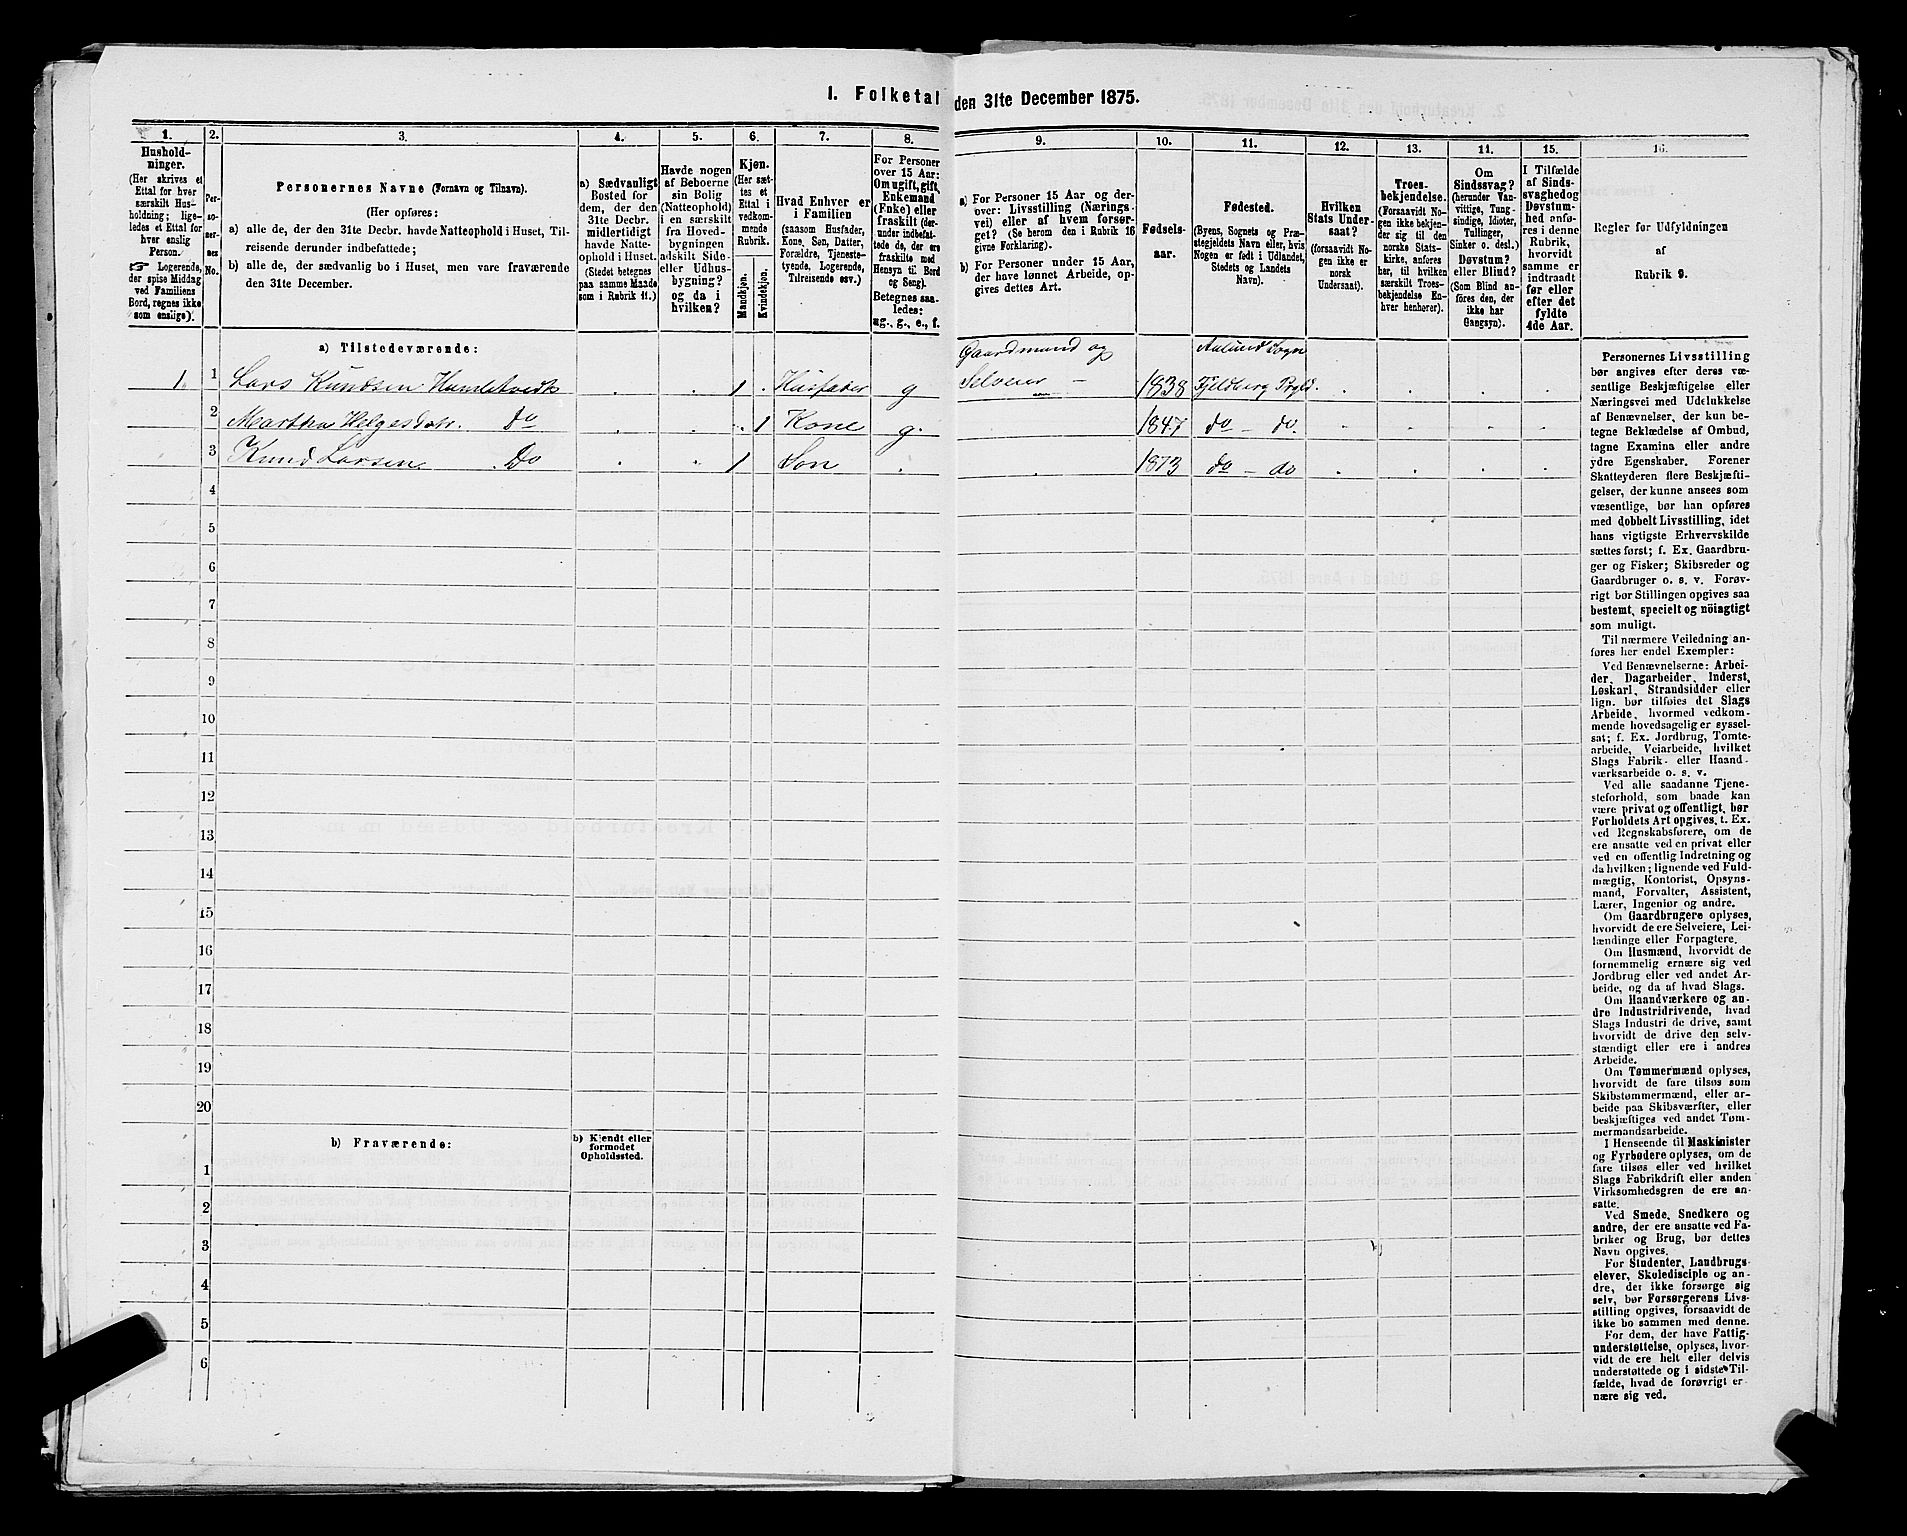 I. Folketal den 31te December 1875.
1.
Hushold-
ninger.
(Her skrives et
Ettal for hver
særskilt Hus-
holdning; lige-
ledes et Ettal for
hver enslig
Person.
☞ Logerende,
der spise Middag
ved Familiens
Bord, regnes ikke
som enslige).
2.
Per-
so-
ner-
nes
No.
3.
Personernes Navne (Fornavn og Tilnavn).
(Her opføres:
a) alle de, der den 31te Decbr. havde Natteophold i Huset, Til-
reisende derunder indbefattede;
b) alle de, der sædvanlig bo i Huset, men vare fraværende
den 31te December.
4.
a) Sædvanligt
Bosted for
dem, der den
31te Decbr.
midlertidigt
havde Natte-
ophold i Huset.
(Stedet betegnes
paa samme Maade
som i Rubrik 11.)
5.
Havde nogen
af Beboerne
sin Bolig
(Natteophold)
i en særskilt
fra Hoved-
bygningen
adskilt Side-
eller Udhus-
bygning?
og da i
hvilken?
6.
Kjøn.
(Her sæt-
tes et
Ettal i
vedkom-
mende
Rubrik.
Mandkjøn.
Kvindekjøn.
7.
Hvad Enhver er
i Familien
(saasom Husfader,
Kone, Søn, Datter,
Forældre, Tjeneste-
tyende, Logerende,
Tilreisende osv.)
8.
For Personer
over 15 Aar:
Om ugift, gift,
Enkemand
(Enke) eller
fraskilt (der-
under indbefat-
tede de, der ere
fraskilte med
Hensyn til Bord
og Seng).
Betegnes saa-
ledes:
ug., g., e., f.
9.
a) For Personer 15 Aar og der-
over: Livsstilling (Nærings-
vei) eller af hvem forsør-
get? (Se herom den i Rubrik 16
givne Forklaring).
b) For Personer under 15 Aar,
der have lønnet Arbeide, op-
gives dettes Art.
10.
Fødsels-
aar.
11.
Fødested.
(Byens, Sognets og Præ-
stegjeldets Navn eller, hvis
Nogen er født i Udlandet,
Stedets og Landets
Navn).
12.
Hvilken
Stats Under-
saat?
(forsaavidt No-
gen ikke er
norsk
Undersaat).
13.
Troes-
bekjendelse.
(Forsaavidt No-
gen ikke bekjen-
der sig til den
norske Stats-
kirke, anføres
her, til hvilken
særskilt Troes-
bekjendelse En-
hver henhører).
11.
Om
Sindssvag?
(herunder Van-
vittige, Tung-
sindige, Idioter,
Tullinger,
Sinker o. desl.)
Døvstum?
eller Blind?
(Som Blind an-
føres den, der
ikke har
Gangsyn).
15.
I Tilfælde
af Sinds-
svaghed og
Døvstum-
hed anfø-
res i denne
Rubrik,
hvorvidt
samme er
indtraadt
før eller
efter det
fyldte
4de Aar.
16.
Regler for Udfyldningen
af
Rubrik 9.
a) Tilstedeværende:
Gaardmand og Aalund Sogn
1. 1 Lars Knudsen Hamletvedt . . 1 . Husfader g Selveier — 1838 Fjeldberg Prgld. . . . .
2 Martha Helgesdatr. do . . . 1 Kone g. 1847 do — do. . . . .
3 Knud Larsen Do . . 1 Søn . . 1873 do — do . . . .
4
5
6
7
8
9
10
11
12
13
14
15
16
17
18
19
20
b) Fraværende:
b) Kjendt eller
formodet
Opholdssted.
1
2
3
4
5
6
Personernes Livsstilling
bør angives efter deres væ-
sentlige Beskjæftigelse eller
Næringsvei med Udelukkelse
af Benævnelser, der kun be-
tegne Beklædelse af Ombud,
tagne Examina eller andre
ydre Egenskaber. Forener
Skatteyderen flere Beskjæfti-
gelser, der kunne ansees som
væsentlige, bør han opføres
med dobbelt Livsstilling, idet
hans vigtigste Erhvervskilde
sættes først; f. Ex. Gaardbru-
ger og Fisker; Skibsreder og
Gaardbruger o. s. v. Forøv-
rigt bør Stillingen opgives saa
bestemt, specielt og nöiagtigt
som muligt.
Til nærmere Veiledning an-
føres her endel Exempler:
Ved Benævnelserne: Arbei-
der, Dagarbeider, Inderst,
Løskarl, Strandsidder eller
lign. bør tilføies det Slags
Arbeide, hvormed vedkom-
mende hovedsagelig er syssel-
sat; f. Ex. Jordbrug, Tomte-
arbeide, Veiarbeide, hvilket
Slags Fabrik- eller Haand-
værksarbeide o. s. v.
Ved alle saadanne Tjene-
steforhold, som baade kan
være privat og offentligt, bør
Forholdets Art opgives, t. Ex.
ved Regnskabsførere, om de
ere ansatte ved en privat eller
ved en offentlig Indretning og
da hvilken; lignende ved Fuld-
mægtig, Kontorist, Opsyns-
mand, Forvalter, Assistent,
Lærer, Ingeniør og andre.
Om Gaardbrugere oplyses,
hvorvidt de ere Selveiere, Lei-
lændinge eller Forpagtere.
Om Husmænd, hvorvidt de
fornemmelig ernære sig ved
Jordbrug eller ved andet Ar-
beide, og da af hvad Slags.
Om Haandværkere og an-
dre Industridrivende, hvad
Slags Industri de drive, samt
hvorvidt de drive den selv-
stændigt eller ere i andres
Arbeide.
Om Tømmermænd oplyses,
hvorvidt de fare tilsøs som
Skibstømmermænd, eller ar-
beide paa Skibsværfter, eller
beskjæftiges ved andet Tøm-
mermandsarbeide.
I Henseende til Maskinister
og Fyrbødere oplyses, om de
fare tilsøs eller ved hvilket
Slags Fabrikdrift eller anden
Virksomhedsgren de ere an-
satte.
Ved Smede, Snedkere og
andre, der ere ansatte ved Fa-
briker og Brug, bør dettes
Navn opgives.
For Studenter, Landbrugs-
elever, Skoledisciple og an-
dre, der ikke forsørge sig
selv, bør Forsørgerens Livs-
stilling opgives, forsaavidt de
ikke bo sammen med denne.
For dem, der have Fattig-
understøttelse, oplyses, hvor-
vidt de ere helt eller delvis
understøttede og i sidste Til-
fælde, hvad de forøvrigt er-
nære sig ved.